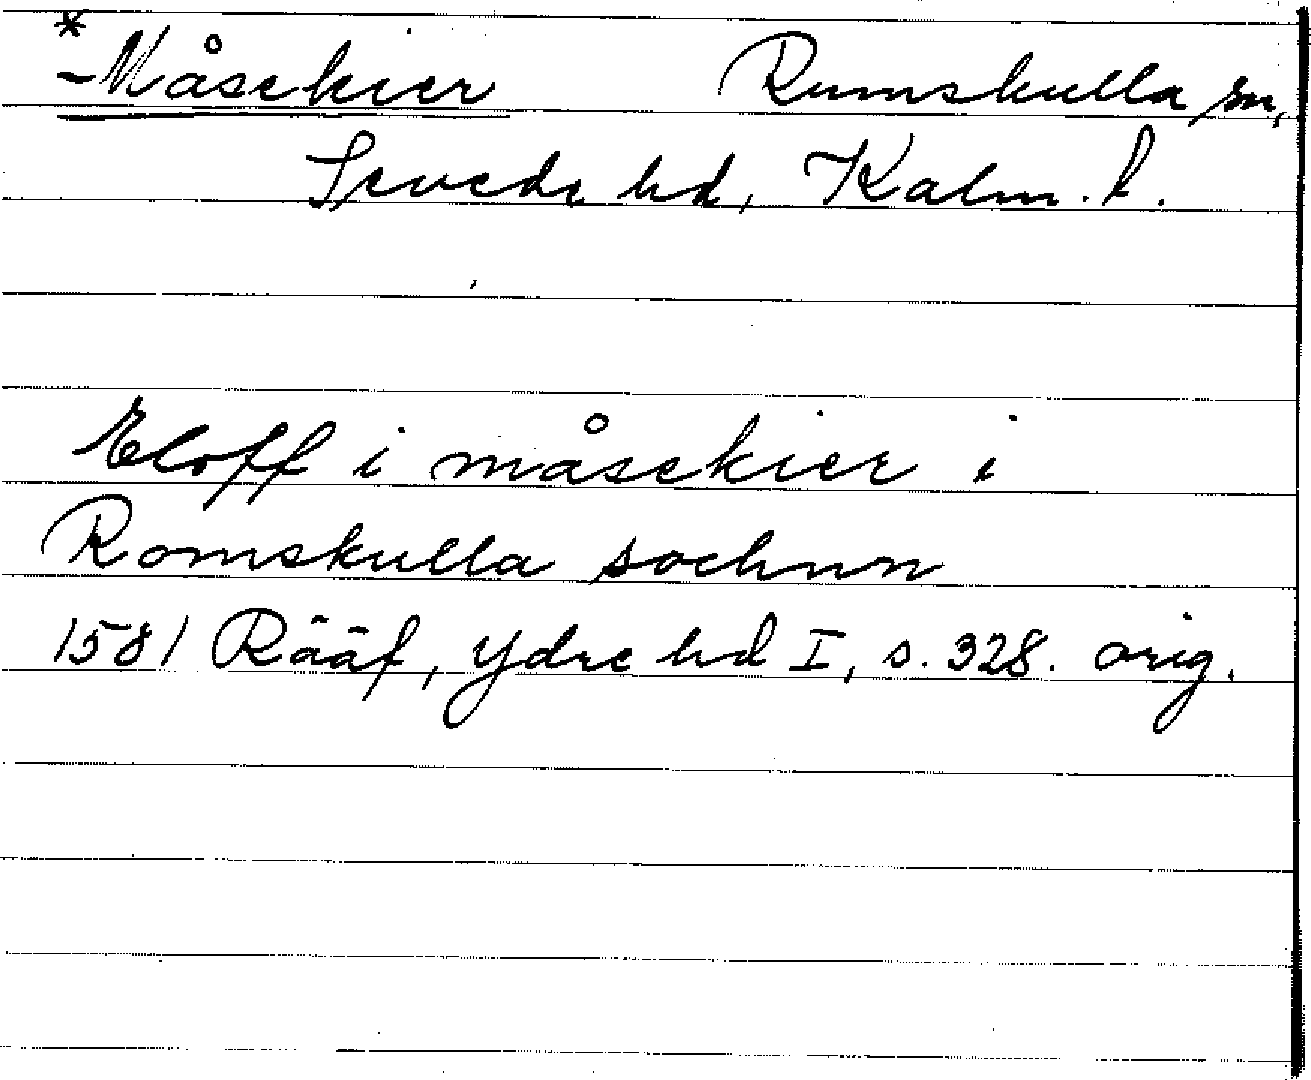 *-Måsekier Rumskulla sn,
Sevede hd, Kalm. l.
Eloff i måsekier i
Romskulla sochnn
1581 Rääf, Ydre hd I, s. 328. orig.